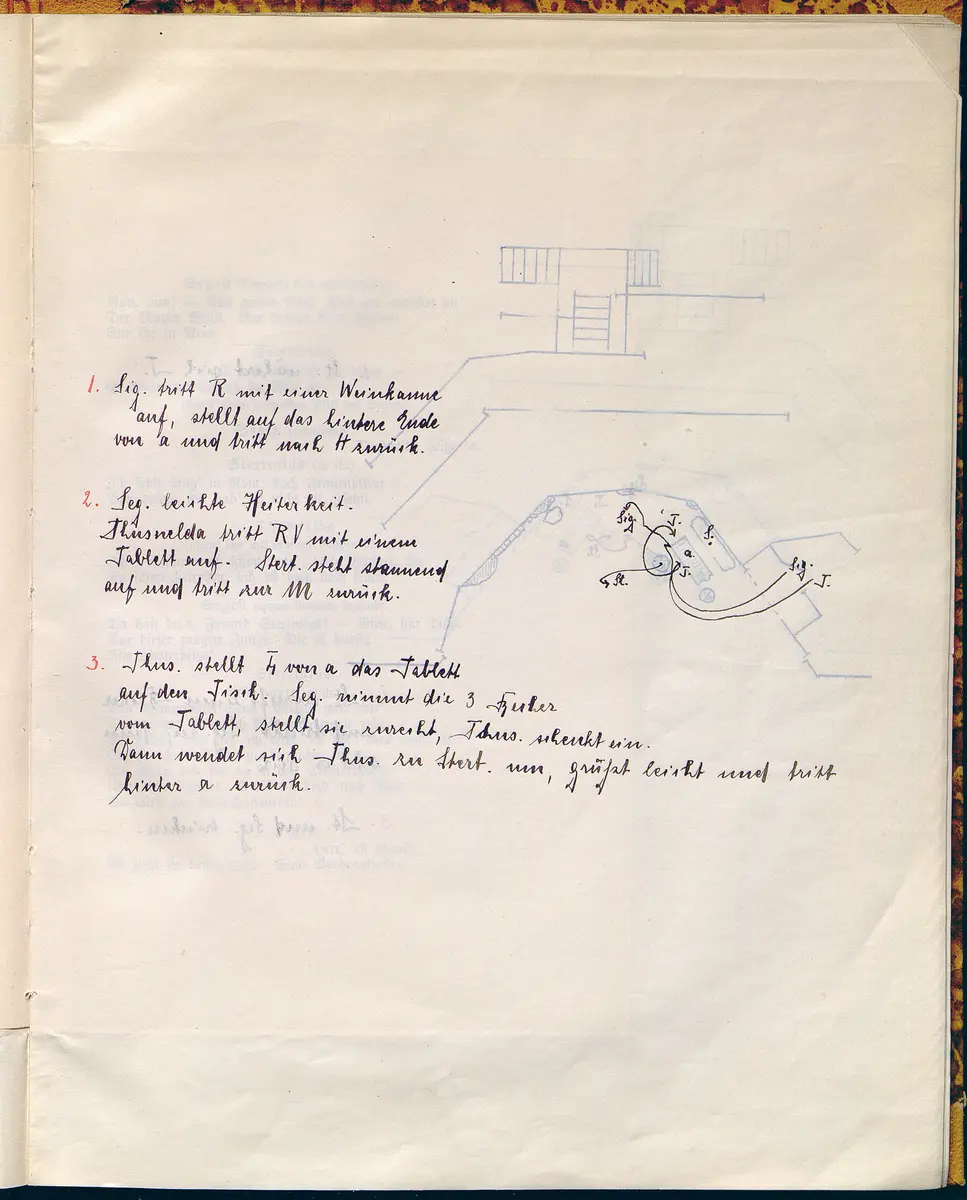 1. Sig. tritt R mit einer Weinkanne
auf, stellt auf das hintere Ende
von a und tritt nach H zurück.
2. Seg. leichte Heiterkeit.
Thusnelda tritt RV mit einem
Tablett auf. Stert. steht staunend
auf und tritt zur M zurück.
3. Thus. stellt von a das Tablett
auf den Tisch. Seg. nimmt die 3 Becher
vom Tablett, stellt sie zurecht, Thus. schenkt ein.
Dann wendet sich Thus. zu Stert. um, grüßt leicht und tritt
hinter a zurück.
Sig.
T.
S.
a.
T.
St.
Sig.
T.